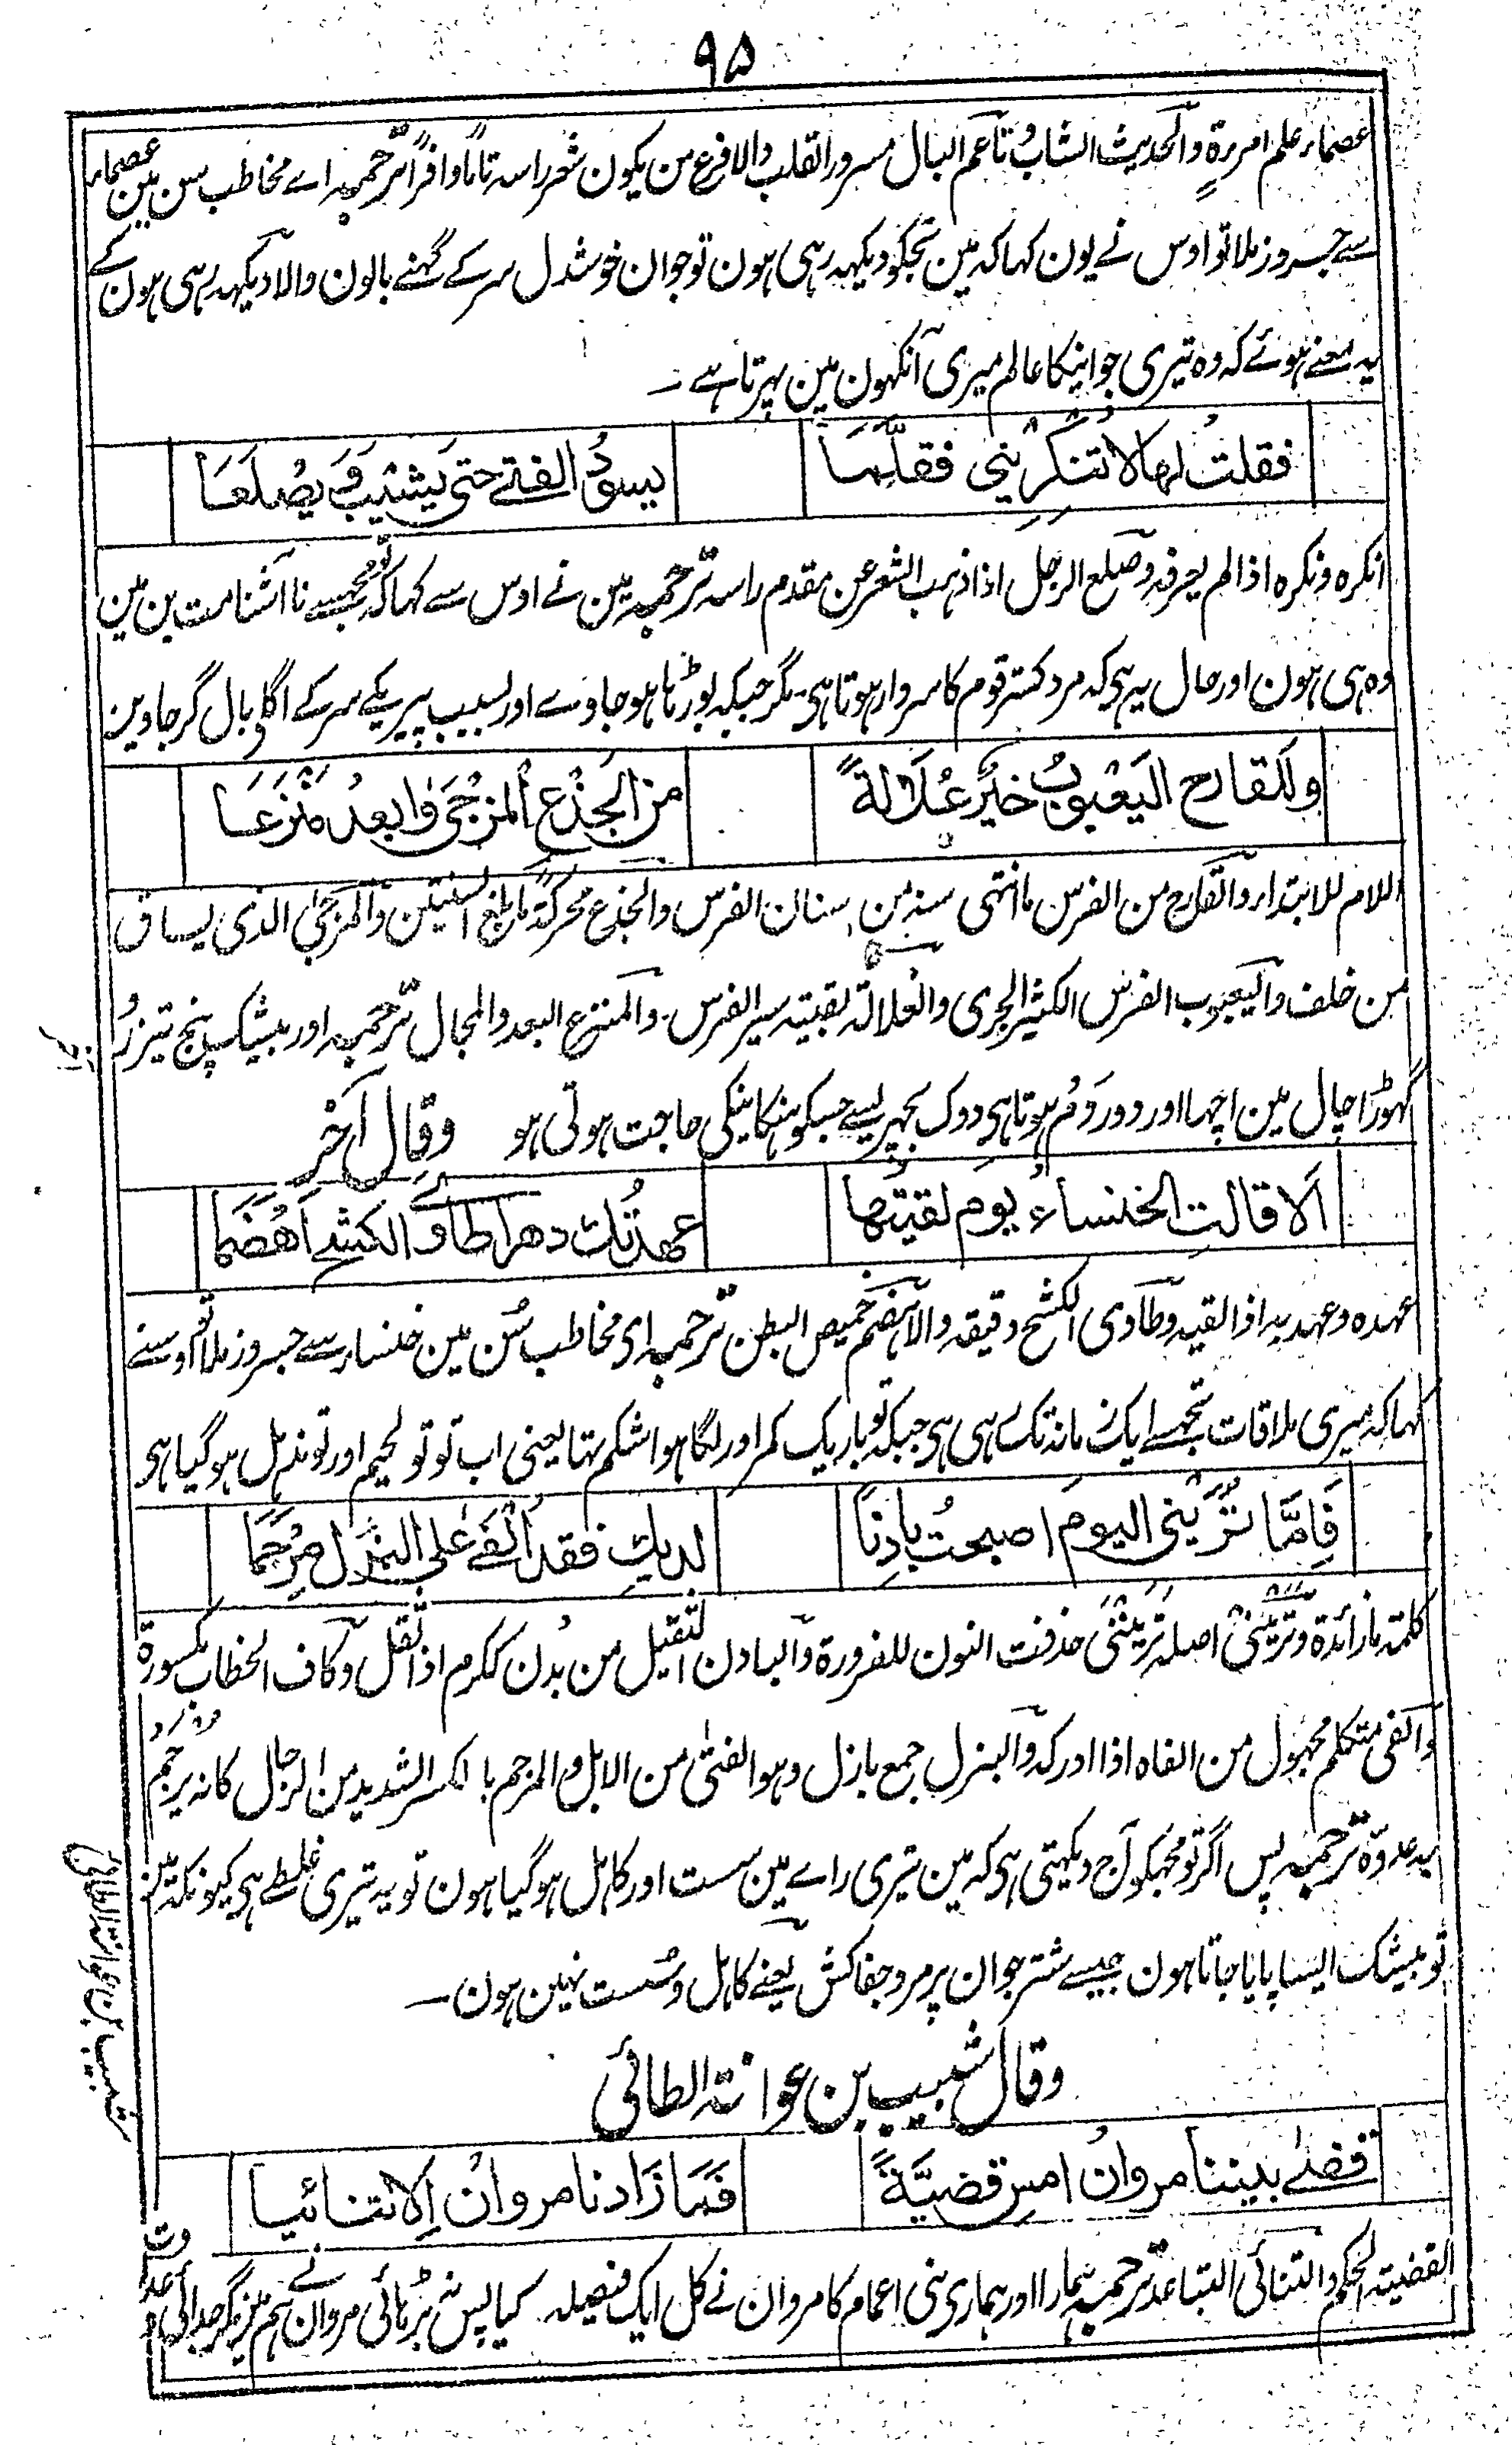 ۹۵
عصماء علم امرءۃٍ والحدیث الشابّ ناعم البال مسرور القلب والافرع من یکون شعر راسہ تاماً وافراً ترجمہ اے مخاطب سن مین عصماء
سے جسروز ملا تو اوس نے یون کہا کہ مین تجکو دیکہہ رہی ہون نوجوان خوشدل سر کے گہنے بالون والا دیکہہ رہی ہون کے
یہ معنے ہوئے کہ وہ تیری جوانیکا عالم میری آنکہون مین پہرتا ہے ۔
فقلتُ لھا لا تنکرینی فقلّما یسودُ الفتے حتی یشیبَ ویصلعَا
انکرہ ونکرہ اذا لم یعرفہ وصلع الرجل اذا ذہب الشعر عن مقدم راسہ ترجمہ مین نے اوس سے کہا کہ تو مجہسے نا آشنا مت بن مین
وہ ہی ہون اور حال یہ ہی کہ مرد کمتر قوم کا سردار ہوتا ہی مگر جبکہ بوڑہا ہو جاوے اور بسبب پیریکے سر کے اگلے بال گر جاوین
وللقارح الیعبوبُ خیرٌ عُلالةً من الجَذَعِ المُزجیٰ وابعدُ منزعَا
اللام للابتداء والقارح من الفرس ما انتہی سنہ من اسنان الفرس والجذع محرکۃً ما بلغ السنتین والمزجی الذی یساق
من خلف والیعبوب الفرس الکثیر الجری والعلالۃ بقیتہ سیر الفرس والمنتزع البعد والمجال ترجمہ اور بیشک پنج تیزرو
گہوڑا چال مین اچہا اور دوردَوم ہوتا ہی دوک بچہریسے جسکو ہنکانیکی حاجت ہوتی ہو وقال آخر
اَلا قالتِ الخنساءُ یومَ لقیتُها عهدتُك دهرا طاوےَ الکشحِ اهضَما
عہدہ وعہد بہ اذا لقیہ وطاوی الکشح دقیقہ والاہضم خمیص البطن ترجمہ ای مخاطب سُن مین خنساء سے جسروز ملا تو اوسنے
کہا کہ میری ملاقات تجہسے ایک زمانہ تک رہی ہی جبکہ تو باریک کمر اور لگا ہوا شکم تہا یعنی اب تو تو لحیم اور توندہل ہو گیا ہی
فَاِمّا تَرَینی الیومَ اصبحتُ بادنًا لدیكِ فقد اُلفےٰ علی البُزّل مِرجَما
کلمۃ ما زائدۃ وترینی اصلہ تریننی حذفت النون للضرورۃ والبادن الثقیل من بدُن ککرم اذا ثقل وکاف الخطاب مکسورۃ
والفی متکلم مجہول من الفاہ اذا ادرکہ والبزل جمع بازل وہو الفتیٰ من الابل والمرجم بالکسر الشدید من الرجال کانہ یرجم
بہ عدوّہ ترجمہ پس اگر تو مجہکو آج دیکہتی ہی کہ مین تیری راے مین سست اور کاہل ہو گیا ہون تو یہ تیری غلطی ہی کیونکہ مین
تو بیشک ایسا پایا جاتا ہون جیسے شتر جوان پر مرد جفاکش یعنے کاہل وسست نہین ہون ۔
وقال شبیب بن عوانۃ الطائی
قضےٰ بیننا مروانُ امسِ قضیّةً فَما زادنا مروانُ اِلا تنائیا
القضیۃ الحکم والتنائی التباعد ترجمہ ہمارا اور ہماری بنی اعمام کا مروان نے کل ایک فیصلہ کیا پس نہ بڑہائی مروان نے ہم مین مگر جدائی وعداوت
شبیب بن عوانۃ الطائی